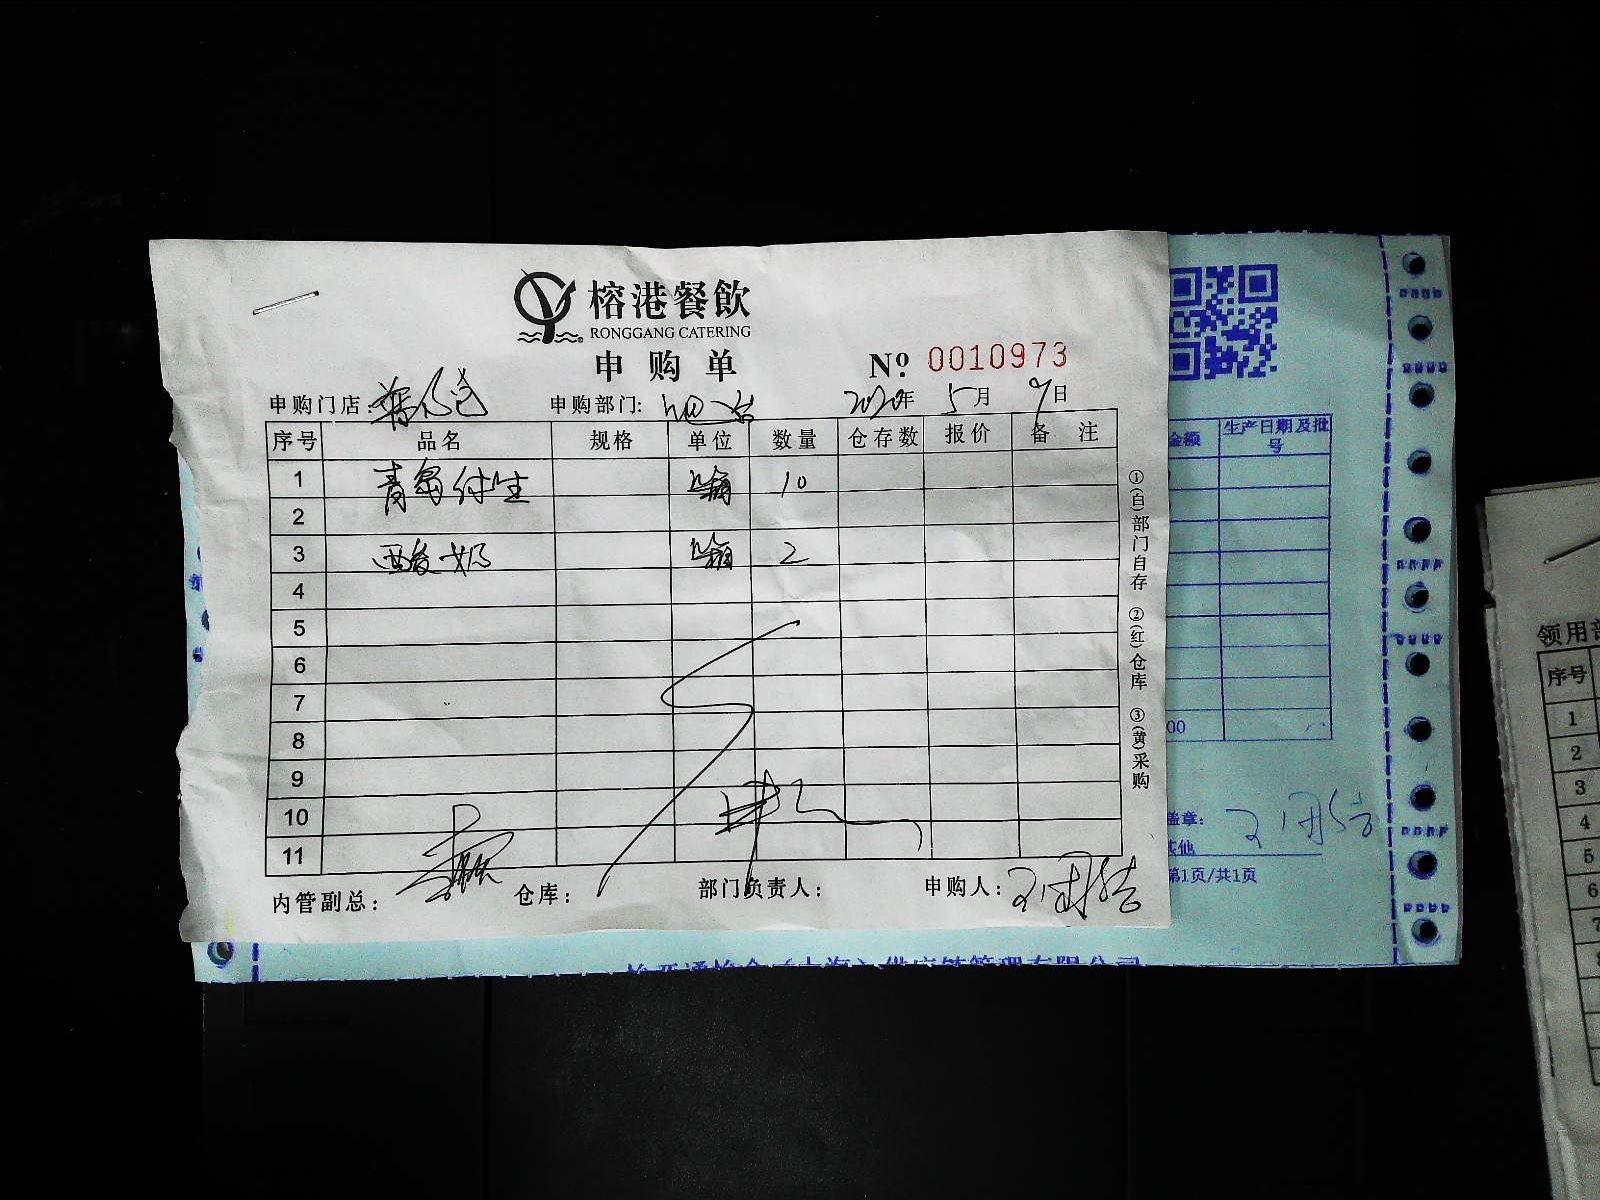 榕港餐飲
RONGGANG CATERING
申购单
№ 0010973
申购门店: 申购部门: 吧台 2020年 5月 9日
序号 品名 规格 单位 数量 仓存数 报价 备注
1 青岛纯生 箱 10
2
3 酸奶 箱 2
4
5
6
7
8
9
10
11
内管副总: 仓库: 部门负责人: 申购人:
①(白)部门自存 ②(红)仓库 ③(黄)采购
金额 生产日期及批号
.00
盖章:
其他
第1页/共1页
领用部
序号
1
2
3
4
5
6
7